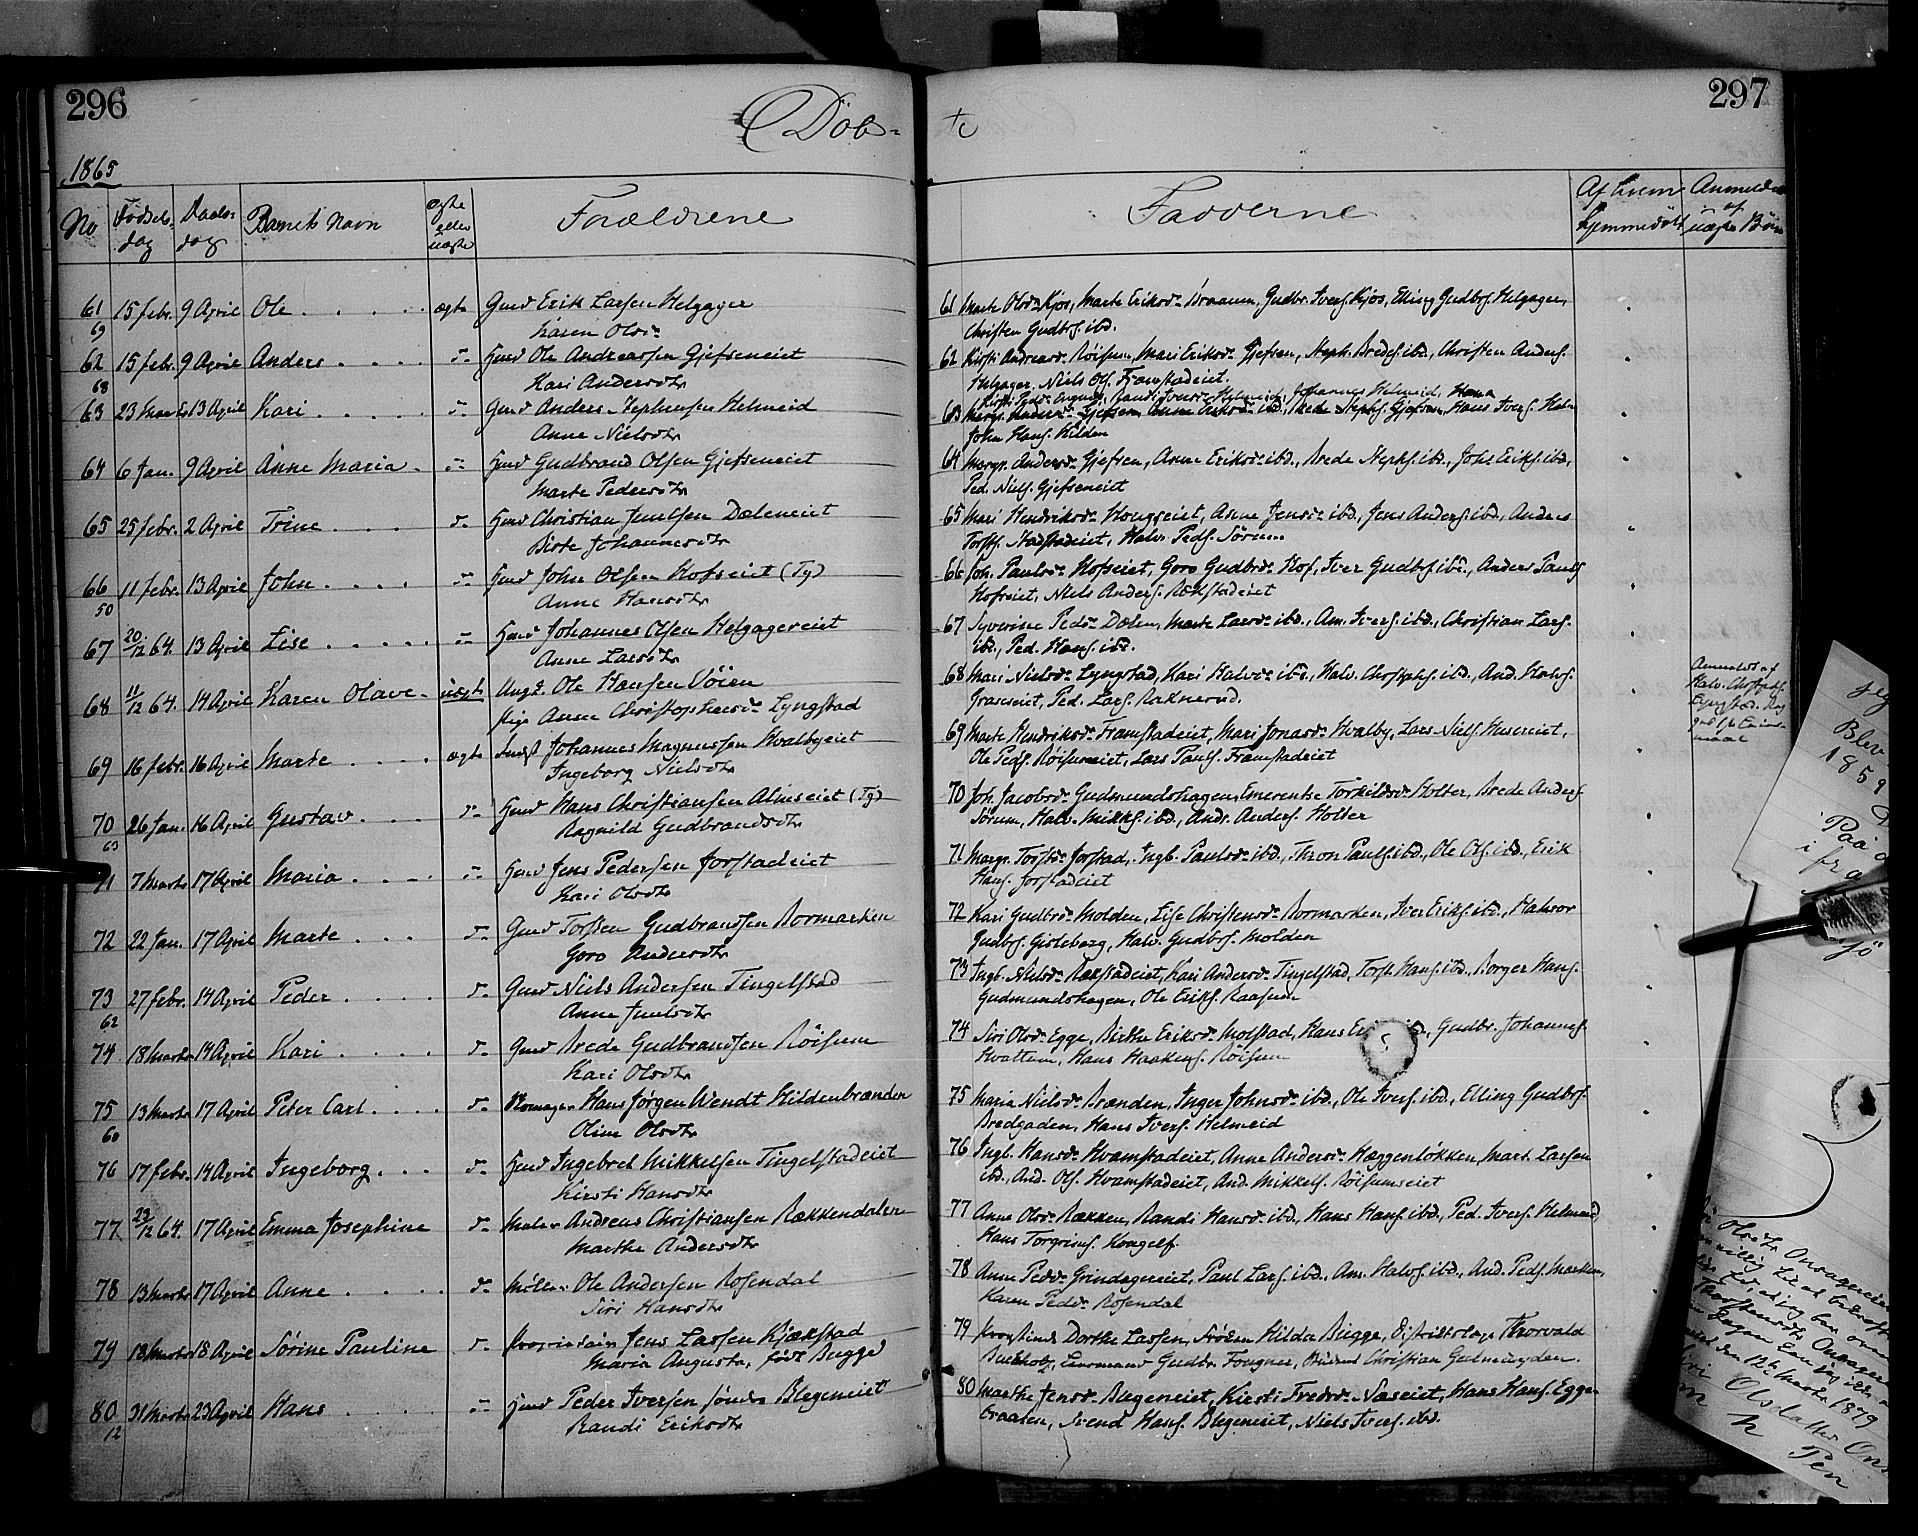 296
Døb-
1865
No Fødsels- dag Daabs- dag Barnets Navn ægte eller uægte Forældrene
61 15 febr. 9 April Ole ægte Gmd Erik Larsen Helgager
69 Karen Olsdr
62 15 febr. 9 April Anders d- Hmd Ole Andreassen Gjefseneiet
68 Kari Andersdtr
63 23 Marts 13 April Kari d- Gmd Anders Stephensen Helmeid
Anne Nielsdtr
64 6 Jan. 9 April Anne Maria d- Hmd Gudbrand Olsen Gjefseneiet
Marte Pedersdtr
65 25 febr. 2 April Trine d- Hmd Christian Juulsen Dæleneiet
Birte Johannesdtr
66 11 febr. 13 April John d- Hmd John Olsen Hofseiet (Tg)
50 Anne Hansdtr
67 20/12 64. 13 April Lise d- Hmd Johannes Olsen Helgagereiet
Anne Larsdtr
68 11/12 64. 14 April Karen Olave uægte Ungk. Ole Hansen Vøien
Pige Anne Christophersdr Lyngstad
69 16 febr. 16 April Marte ægte Johannes Magnussen Hvalbyeiet
Ingeborg Nielsdtr
70 26 Jan. 16 April Gustav d- Hmd Hans Christiansen Almseiet (Tg)
63 Ragnild Gudbrandsdtr
71 7 Marts 17 April Maria d- Hmd Jens Pedersen Jorstadeiet
Kari Olsdtr
72 22 Jan. 17 April Marte d- Gmd Torsten Gudbrandsen Rormarken
Goro Andersdtr
73 27 febr. 14 April Peder d- Gmd Niels Andersen Tingelstad
62 Anne Juulsdtr
74 18 Marts 14 April Kari d- Gmd Brede Gudbrandsen Røisum
Kari Olsdtr
75 13 Marts 17 April Peter Carl d- Skomager Hans Jørgen Wendt Hildenbrænden
60 Oline Olsdtr
76 17 febr. 14 April Ingeborg d- Hmd Ingebret Mikkelsen Tingelstadeiet
Kirsti Hansdtr
77 22/12 64. 17 April Emma Josephine d- Maler Andreas Christiansen Rækkendalen
Marthe Andersdtr
78 13 Marts 17 April Anne d- Møller Ole Andersen Rosendal
Siri Hansdtr
79 18 Marts 18 April Sørine Pauline d- Proprietair Jens Lassen Kjækstad
Maria Augusta, født Bugge
80 31 Marts 23 April Hans d- Hmd Peder Iversen søndre Blegeneiet
12 Randi Eriksdtr
297
te
Fadderne
Af hvem hjemmedøbt Anmeldelse af uægte Børn
61 Marte Olsdr Kjos, Marte Eriksdr Braanen, Gudbr. Ivers. Kjos, Elling Gudbrs. Helgager,
Christen Gudbrs. ibd.
62 Kirsti Andreasdr Røisum, Mari Eriksdr Gjefsen, Steph. Bredes. ibd., Christen Anders.
Helgager, Niels Ols. Framstadeiet.
Randi Iversdr Helmeid, Johannes Helmeid, Hans
63 Margr. Andersdr Gjefsen, Anne Eriksdr ibd., Brede Stephs. Gjefsen, Hans Ivers. Helm
John Hans. Hilden
64 Margr. Andersdr Gjefsen, Anne Eriksdr ibd., Brede Stephs. ibd., Johs Eriks. ibd.,
Ped. Niels. Gjefseneiet
65 Mari Hendriksdr Hougseiet, Anne Jensdr ibd., Jens Anders. ibd., Anders
Torsts. Stadstadeiet, Halv. Peds. Sørum
66 Joh. Paulsdr Hofseiet, Goro Gudbrdr Hof, Iver Gudbrs. ibd., Anders Pauls.
Hofseiet, Niels Anders. Rækstadeiet
67 Syverine Pedsdr Dælen, Marte Larsdr ibd., Am. Ivers. ibd., Christian Lars.
ibd., Ped. Hans. ibd.
68 Mari Nielsdr Lyngstad, Kari Halvdr ibd., Halv. Chrsphs. ibd., And. Halvs.
Grasseiet, Ped. Lars. Raknerud.
Anmeldt af
Halv. Chrstophs.
Lyngstad.
69 Marte Hendriksdr Framstadeiet, Mari Jonasdr Hvalby, Lars Niels. Husereiet,
Ole Peds. Røisumeiet, Lars Pauls. Framstadeiet
70 Joh. Jacobsdr Gudmundshagen, Emerentse Torkildsdr Holter, Brede Anders.
Sørum, Halv. Mikks. ibd., Andr. Anders. Holter
71 Margr. Torstdr Jorstad, Ingb. Paulsdr ibd., Thron Pauls. ibd., Ole Ols. ibd., Erik
Hans. Jorstadeiet
72 Kari Gudbrdr Molden, Lise Christensdr Rormarken, Iver Eriks. ibd., Halvor
Gudbrs. Gisleberg, Halv. Gudbrs. Molden
73 Ingb. Nielsdr Rækstadeiet, Kari Andersdr Tingelstad, Torst. Hans. ibd., Borger Hans.
Gudmundshagen, Ole Eriks. Raasum
74 Siri Olsdr Egge, Birthe Eriksdr Molstad, Hans, Gudbr. Johannes.
Hvattum, Hans Haakens. Røisum
75 Maria Nielsdr Brænden, Inger Johnsdr ibd., Ole Ivers. ibd., Elling Gudbrs.
Bredgaden, Hans Ivers. Helmeid
76 Ingb. Hansdr Hvamstadeiet, Anne Andersdr Hæggenløkken, Mart. Larsen
ibd., And. Ols. Hvamstadeiet, And. Mikkels. Røisumseiet
77 Anne Olsdr Rækken, Randi Hansdr ibd., Hans Hans. ibd., Ped. Ivers. Helmeid,
Hans Torgrims. Kongelf.
78 Anne Pedsdr Grindagereiet, Paul Lars. ibd., Am. Halvs. ibd., And. Peds. Marken,
Karen Pedsdr Rosendal
79 Dorthe Lassen, Frøken Hilda Bugge, Districtslæge Thorvald
Buchholz, Lensmand Gudbr. Fougner, Christian Gudmunden.
80 Marthe Jensdr Blegeneiet, Kirsti Fredrdr Næseiet, Hans Hans. Egge
braaten, Svend Hans. Blegeneiet, Niels Ivers. ibd.
Blev
1859
Paa
12te Marts 1879
Olsdatter